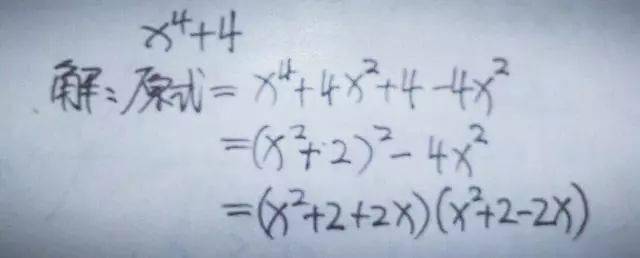 x⁴+4
解:原式= x⁴+4x²+4-4x²
=(x²+2)²-4x²
=(x²+2+2x)(x²+2-2x)